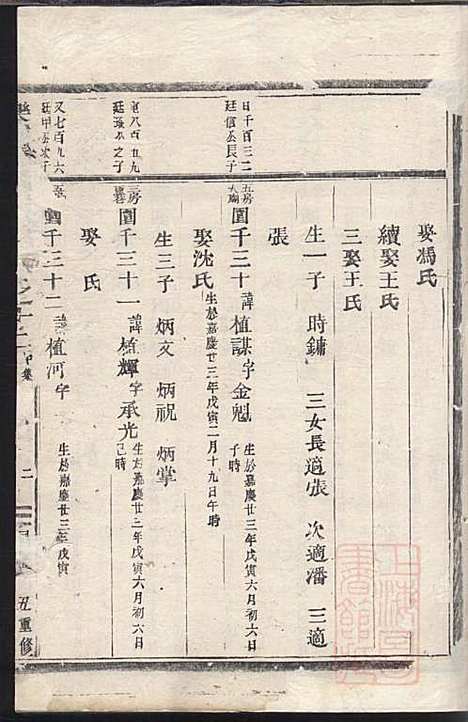 娶馮氏
續娶王氏
三娶王氏
生一子 時鏞 三女長適張 次適潘 三適
張
日千百三二
廷信公長子
五房
圍千三十 諱植謀字金魁 生於嘉慶廿三年戊寅六月初六日
子時
娶沈氏 生於嘉慶廿三年戊寅二月十九日午時
生三子 炳文 炳祝 炳掌
八百五九
之子
三房
圍千三十一 諱植輝字承光 生於嘉慶廿三年戊寅六月初六日
巳時
娶 氏
又七百九六
廷甲公次子
千三十二 諱植河字 生於嘉慶廿三年戊寅
集
二
丑重修